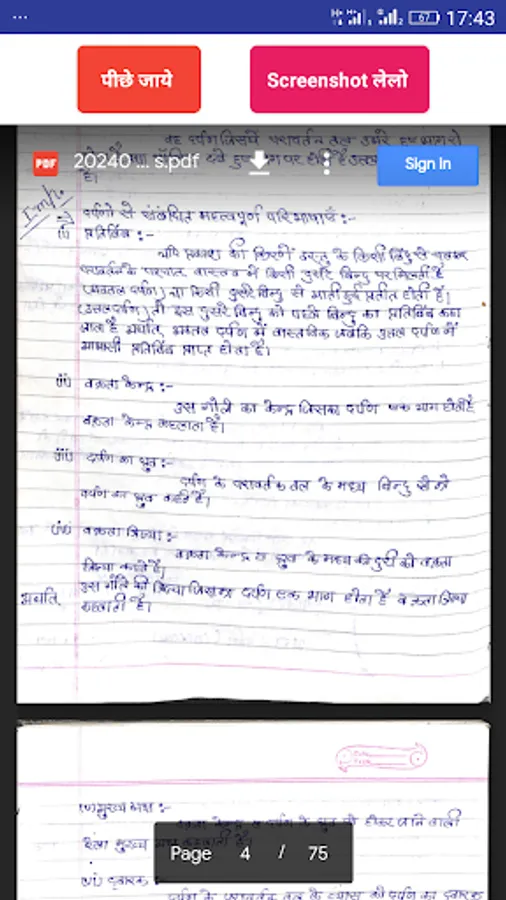 ... 67 17:43
पीछे जाये Screenshot लेलो
वह दर्पण जिसमें परावर्तन तल उभरे हुए भाग से
PDF 20240 ... s.pdf Sign In
है।
Imp.
दर्पणो से संबंधित महत्वपूर्ण परिभाषाएँ :-
(i) प्रतिबिंब :-
यदि प्रकाश की किरणें वस्तु के किसी बिंदु से चलकर
परावर्तन के पश्चात् वास्तव में किसी दुसरे बिन्दु पर मिलती है
(अवतल दर्पण) या किसी दुसरे बिन्दु से आती हुई प्रतीत होती है।
(उत्तल दर्पण) तो इस दुसरे बिन्दु को पहले बिन्दु का प्रतिबिंब कहा
जाता है अर्थात्, अवतल दर्पण में वास्तविक जबकि उत्तल दर्पण में
आभासी प्रतिबिंब प्राप्त होता है।
(ii) वक्रता केन्द्र :-
उस गोले का केन्द्र जिसका दर्पण एक भाग होता है
वक्रता केन्द्र कहलाता है।
(iii) दर्पण का ध्रुव :-
दर्पण के परावर्तक तल के मध्य बिन्दु को
दर्पण का ध्रुव कहते है।
(iv) वक्रता त्रिज्या :-
वक्रता केन्द्र व ध्रुव के मध्य की दुरी को वक्रता
त्रिज्या कहते है।
अर्थात् उस गोले की त्रिज्या जिसका दर्पण एक भाग होता है वक्रता त्रिज्या
कहलाती है।
(v) मुख्य अक्ष :-
वक्रता केन्द्र व दर्पण के ध्रुव से होकर जाने वाली
रेखा मुख्य
Page 4 / 75
(vi) द्वारक :-
दर्पण के परावर्तक तल के व्यास को दर्पण का द्वारक